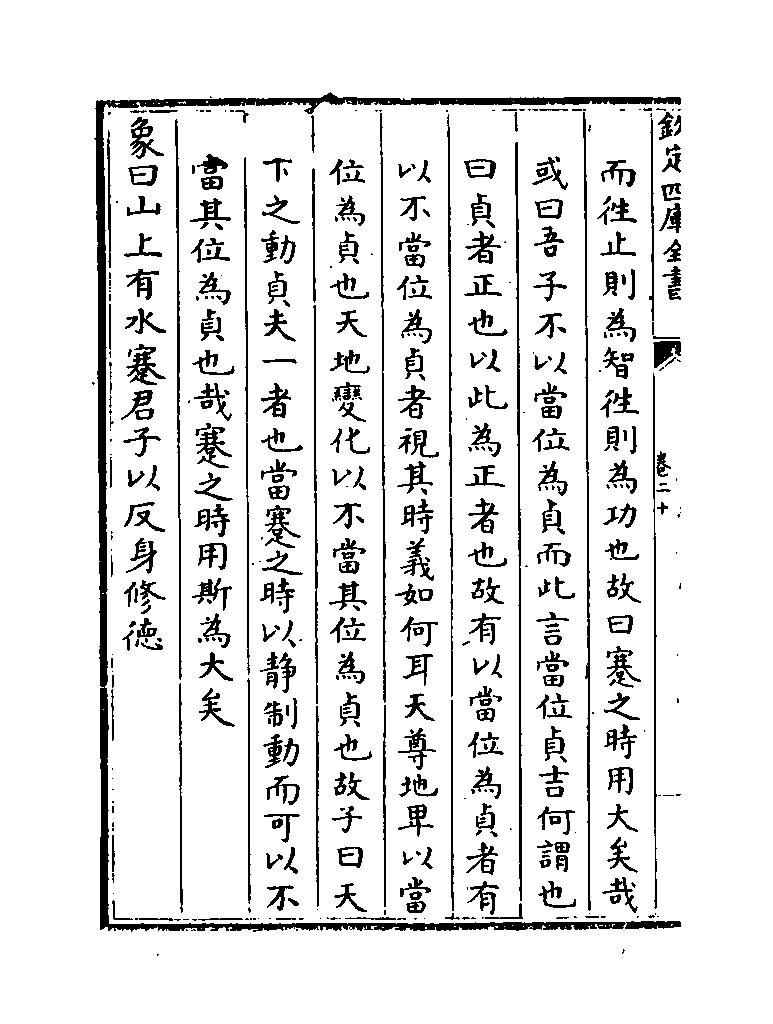 欽定四庫全書
卷二十
而徃止則為智徃則為功也故曰蹇之時用大矣哉
或曰吾子不以當位為貞而此言當位貞吉何謂也
曰貞者正也以此為正者也故有以當位為貞者有
以不當位為貞者視其時義如何耳天尊地卑以當
位為貞也天地變化以不當其位為貞也故子曰天
下之動貞夫一者也當蹇之時以静制動而可以不
當其位為貞也哉蹇之時用斯為大矣
象曰山上有水蹇君子以反身修徳